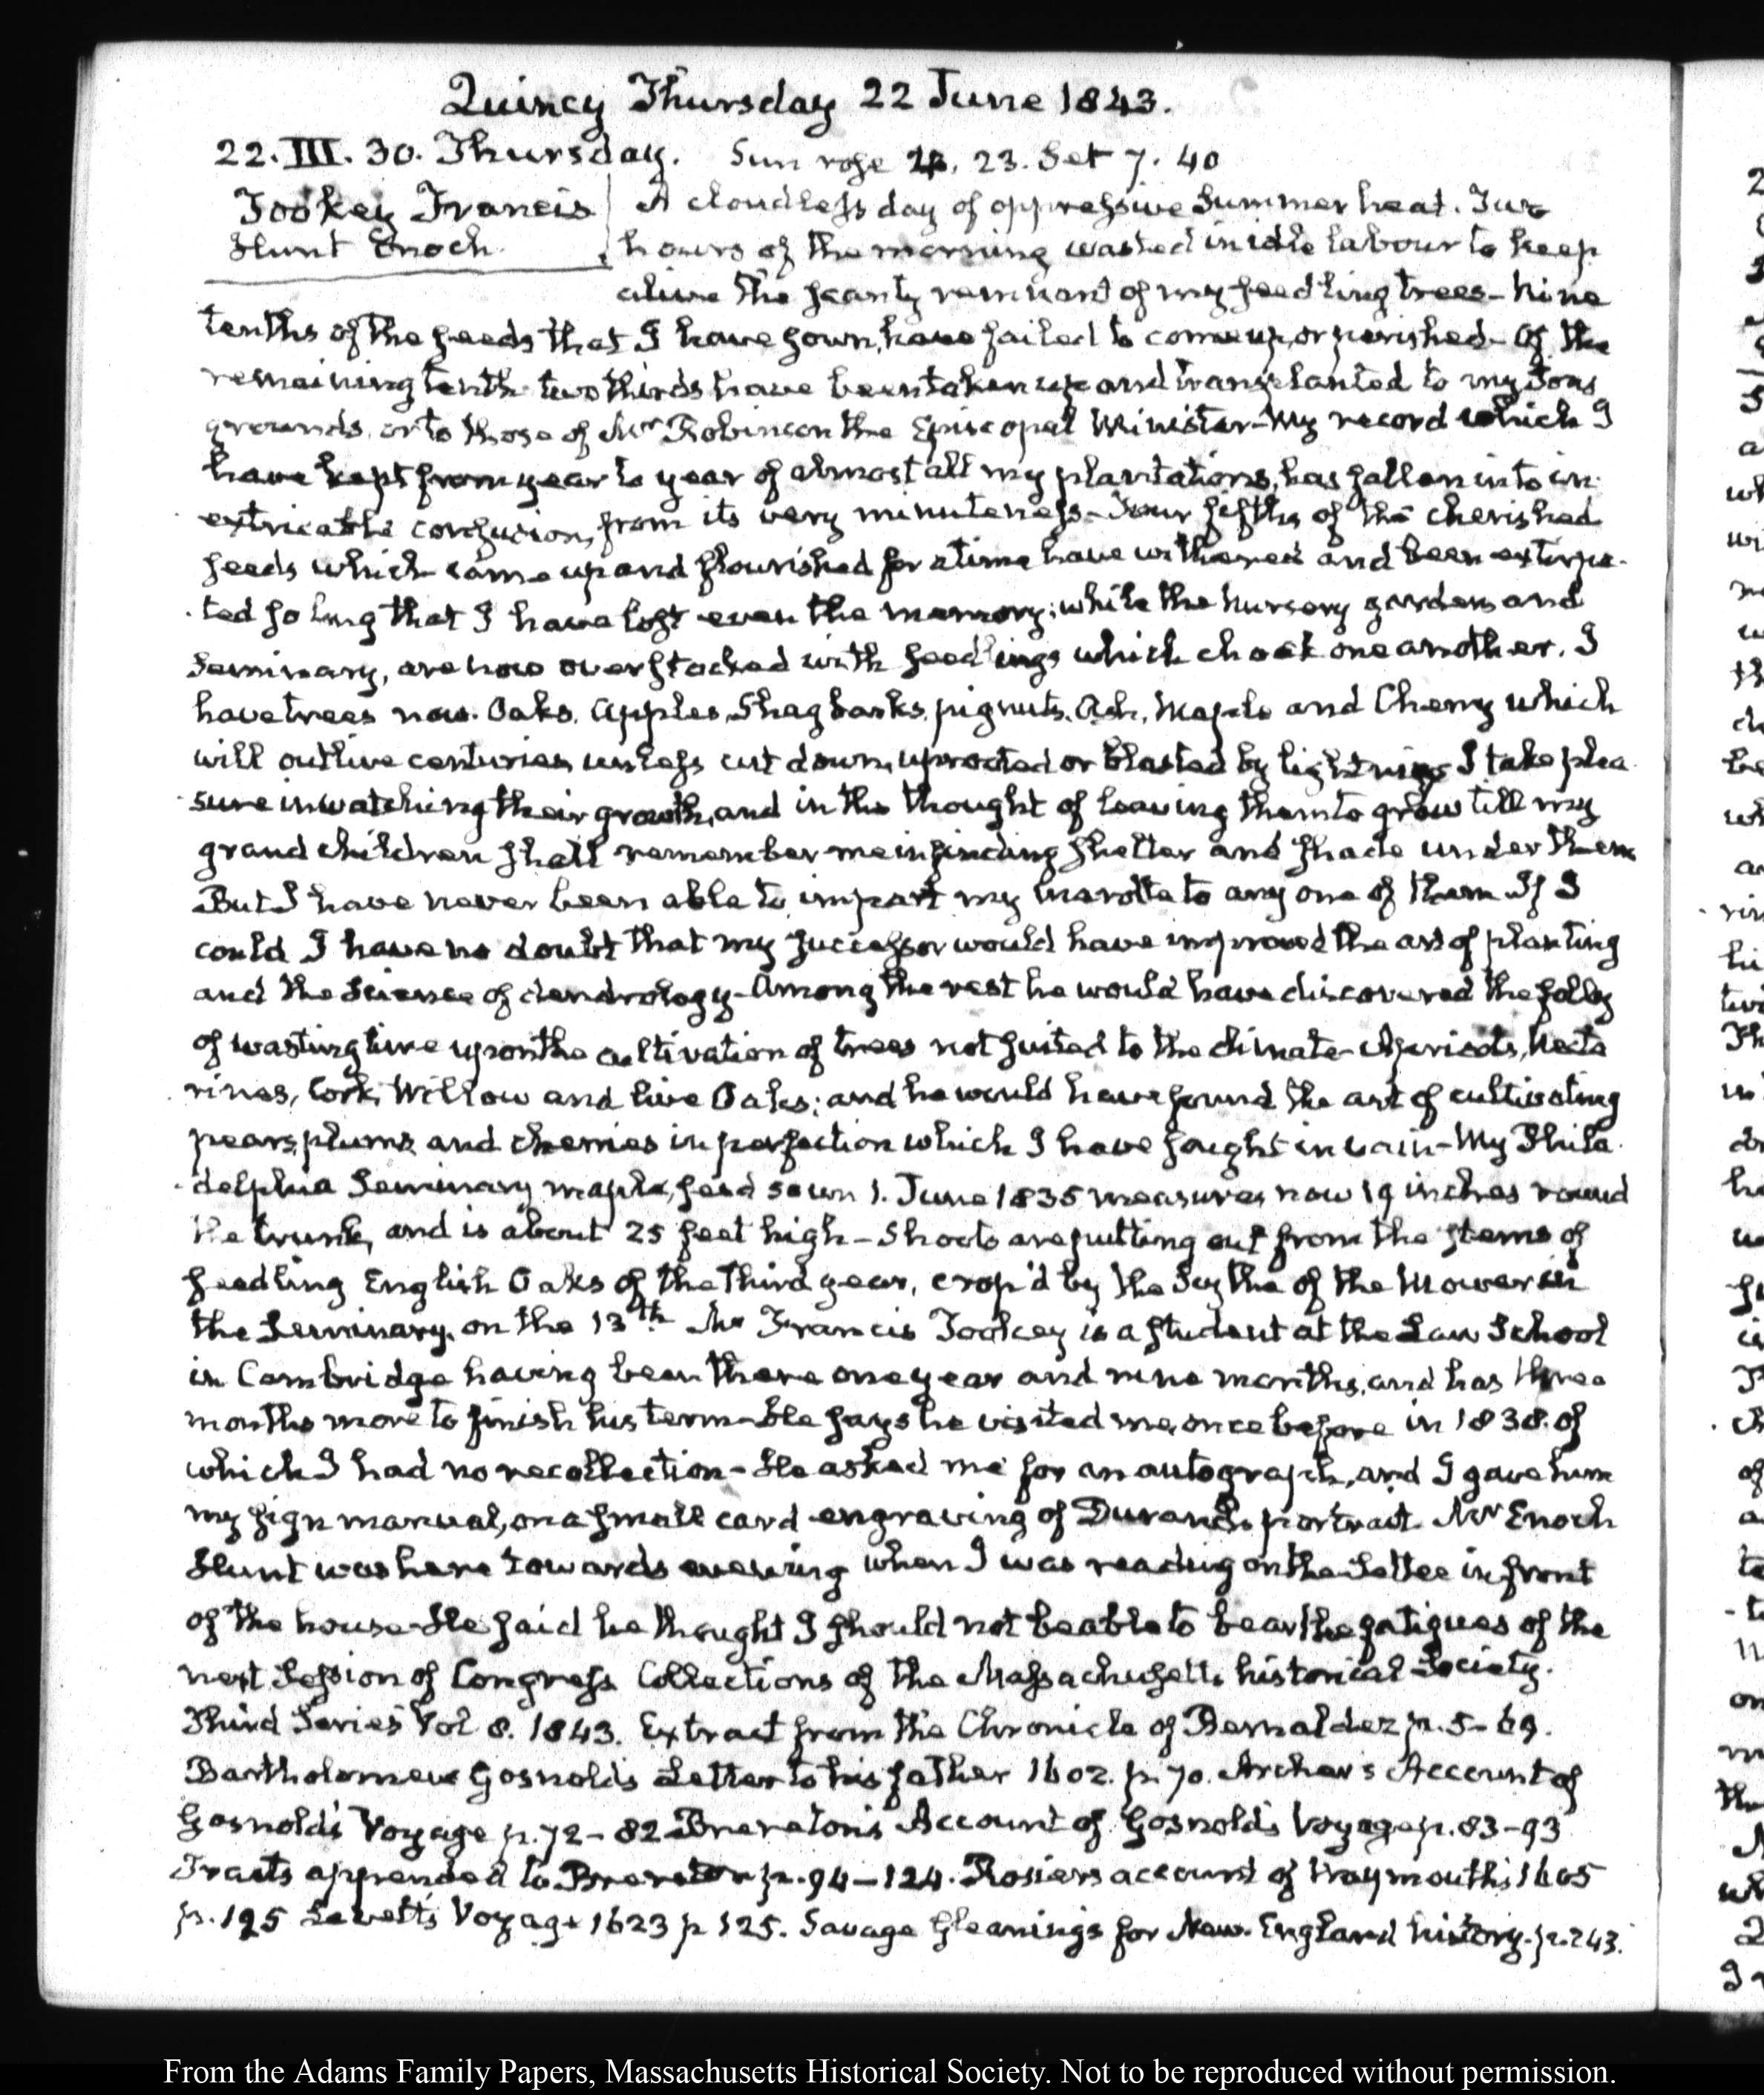 Quincy Thursday 22 June 1843.
22. III. 30. Thursday. Sun rose 4. 23. Set 7. 40
Tookey Francis
Hunt Enoch.
A cloudless day of oppressive Summer heat. Two
hours of the morning wasted in idle labour to keep
alive the scanty remnant of my seedling trees – Nine
tenths of the seeds that I have sown, have failed to come up, or perished – Of the
remaining tenth two thirds have been taken up and transplanted to my Sons
grounds, or to those of Mr Robinson the Episcopal Minister – My record which I
have kept from year to year of almost all my plantations, has fallen into in-
extricable confusion, from its very minuteness – Four fifths of the cherished
seeds which came up and flourished for a time have withered and been extirpa-
ted so long that I have lost even the memory; while the Nursery garden and
Seminary, are now overstocked with seedlings which choak one another. I
have trees now. Oaks, Apples, Shagbarks, pignuts, Ash, Maple and Cherry which
will outlive centuries, unless cut down, uprooted or blasted by lightning I take plea-
sure in watching their growth, and in the thought of leaving them to grow till my
grand children shall remember me in finding shelter and shade under them
But I have never been able to impart my marotte to any one of them If I
could I have no doubt that my successor would have improved the art of planting
and the Science of dendrology – Among the rest he would have discovered the folly
of wasting time upon the cultivation of trees not suited to the climate – Apricots, Necta-
rines, Cork, Willow and live Oaks; and he would have found the art of cultivating
pears, plums, and cherries in perfection which I have sought in vain – My Phila-
delphia Seminary maple, seed sown 1. June 1835 measures now 19 inches round
the trunk, and is about 25 feet high – Shoots are putting out from the stems of
seedling English Oaks of the third year, crop'd by the Scythe of the Mower in
the Seminary, on the 13th Mr Francis Tookey is a student at the Law School
in Cambridge having been there one year and nine months, and has three
months more to finish his term – He says he visited me, once before in 1838. of
which I had no recollection – He asked me for an autograph, and I gave him
my sign manual, on a small card engraving of Durand's portrait. Mr Enoch
Hunt was here towards evening when I was reading on the Settee in front
of the house – He said he thought I should not be able to bear the fatigues of the
next Session of Congress Collections of the Massachusetts historical Society.
Third Series Vol 8. 1843. Extract from the Chronicle of Bernaldez p. 5–69.
Bartholomew Gosnold's Letter to his father 1602. p. 70. Archer's Account of
Gosnold's Voyage p. 72–82 Brereton's Account of Gosnold's Voyage p. 83–93
Tracts appended to Brereton p. 94–124. Rosier's account of Waymouth's 1605
p. 125 Levett's Voyage 1623 p 125. Savage Gleanings for New-England history. p. 243.
From the Adams Family Papers, Massachusetts Historical Society. Not to be reproduced without permission.